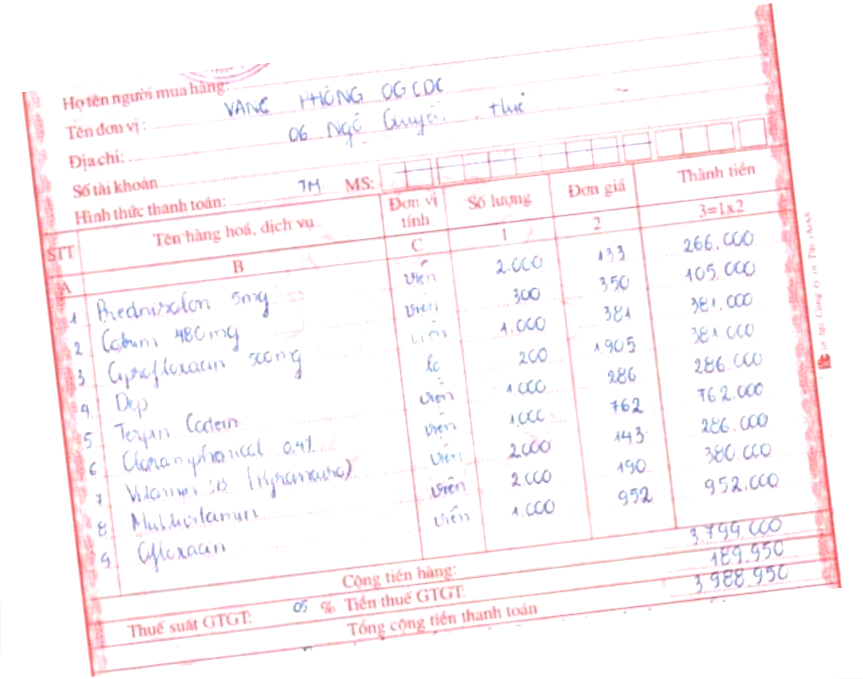 Họ tên người mua hàng:
Tên đơn vị: VĂNG PHÒNG OGCDC
Địa chỉ: 06 Ngô Quyền. Huế
Số tài khoản
Hình thức thanh toán: TM MS:
STT Tên hàng hoá, dịch vụ Đơn vị tính Số lượng Đơn giá Thành tiền
A B C 1 2 3=1x2
1 Prednisolon 5mg viên 2.000 133 266.000
2 Cotrim 480mg viên 300 350 105.000
3 Ciprofloxacin 500mg viên 1.000 381 381.000
4 Dep lọ 200 1.905 381.000
5 Terpin Codein viên 1.000 286 286.000
6 Cloramphenicol 0,4% viên 1.000 762 762.000
7 Vitamin viên 2.000 143 286.000
8 Multivitamin viên 2.000 190 380.000
9 Ofloxacin viên 1.000 952 952.000
Cộng tiền hàng: 3.799.000
Thuế suất GTGT: 05 % Tiền thuế GTGT: 189.950
Tổng cộng tiền thanh toán 3.988.950